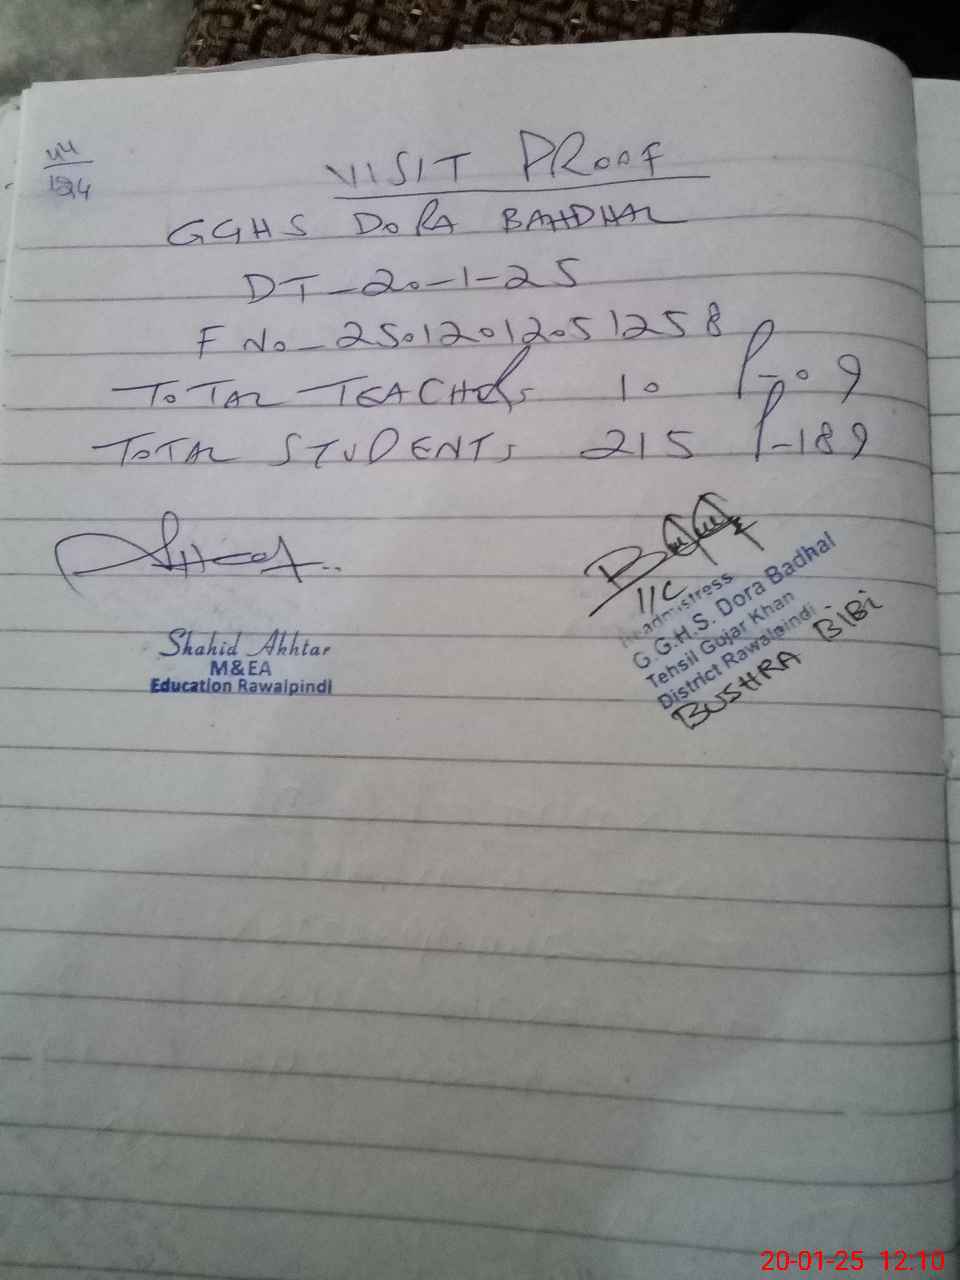 44
VISIT PROOF
GGHS DORA BAHDHAL
DT-20-1-25
F No-2501201205 1258
TOTAL TEACHERS 10 P-09
TOTAL STUDENTS 215 P-189
I/C
Headmistress
G.G.H.S. Dora Badhal
Tehsil Gujar Khan
District Rawalpindi
BUSHRA BIBI
Shahid Akhtar
M&EA
Education Rawalpindi
20-01-25 12.10